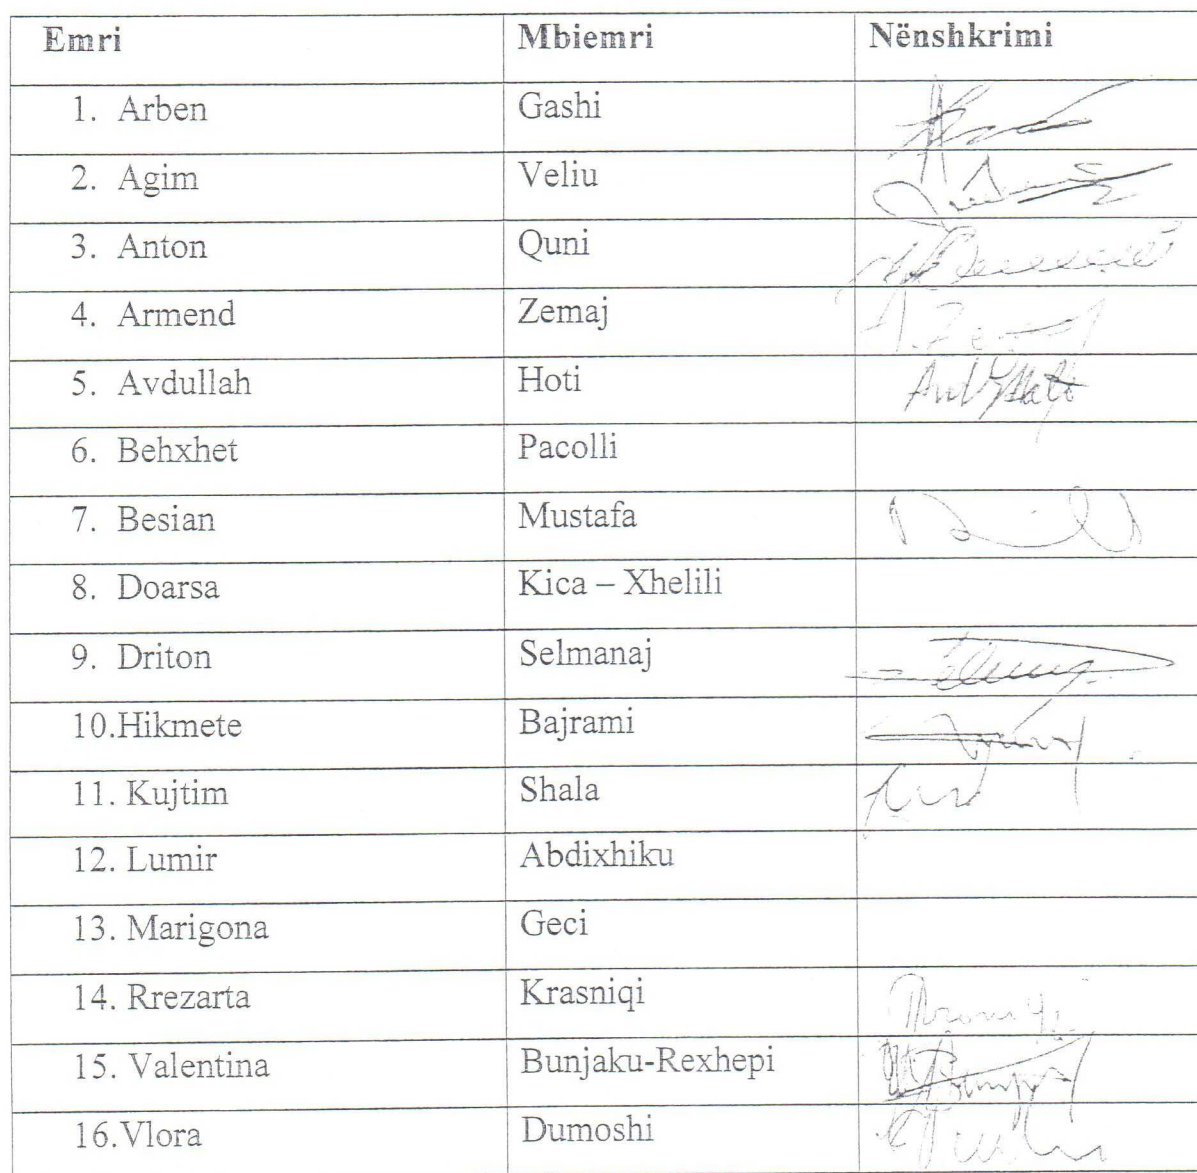 Emri Mbiemri Nënshkrimi
1. Arben Gashi
2. Agim Veliu
3. Anton Quni
4. Armend Zemaj
5. Avdullah Hoti
6. Behxhet Pacolli
7. Besian Mustafa
8. Doarsa Kica – Xhelili
9. Driton Selmanaj
10.Hikmete Bajrami
11. Kujtim Shala
12. Lumir Abdixhiku
13. Marigona Geci
14. Rrezarta Krasniqi
15. Valentina Bunjaku-Rexhepi
16.Vlora Dumoshi